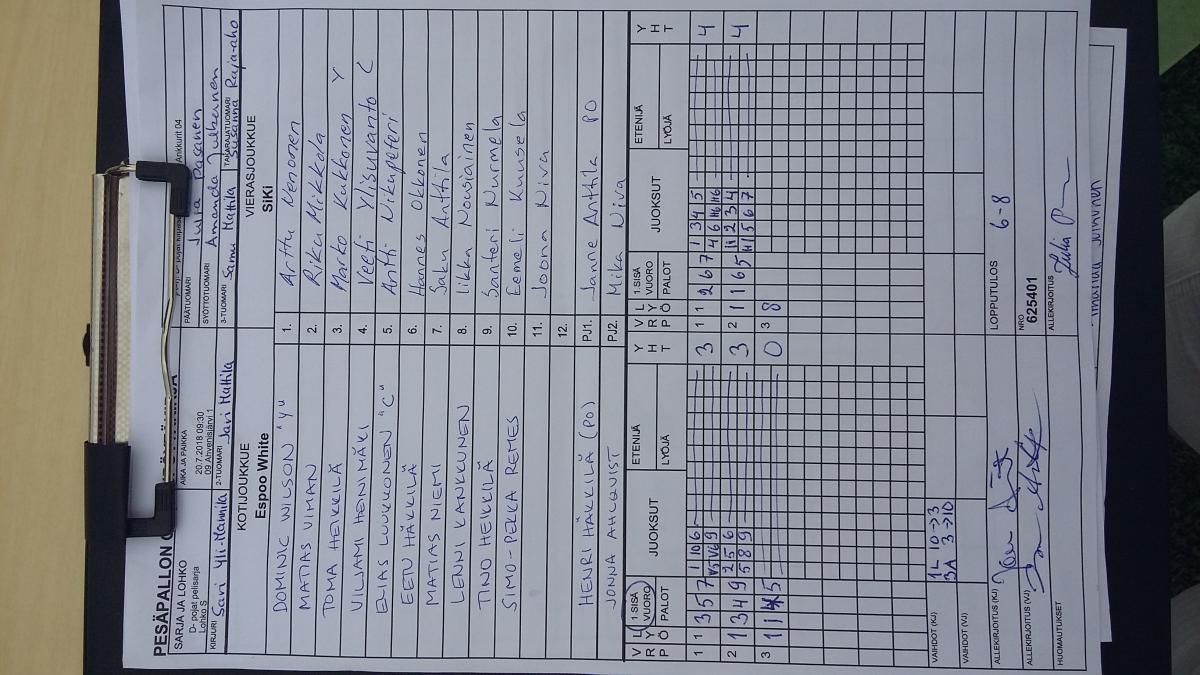 PESÄPALLON
SARJA JA LOHKO
D- pojat pelisarja
Lohko S
AIKA JA PAIKKA
20.7.2018 09:30
09 Ahvenisjärvi 1
Ankkurit 04
PÄÄTUOMARI Julia Pasanen
SYÖTTÖTUOMARI Amanda Julkunen
KIRJURI Sari Yli-Mannila
2-TUOMARI Jari Mattila
3-TUOMARI Samu Mattila
TAKARAJATUOMARI Susanna Raja-aho
KOTIJOUKKUE
Espoo White
VIERASJOUKKUE
SiKi
DOMINIC WILSON "Y" 1. Arttu Venonen
MATIAS VIMAN 2. Riku Mikkola
TOMA HEIKKILÄ 3. Marko Kukkonen Y
VILJAMI HENIMÄKI 4. Veeti Ylisuvanto C
ELIAS LUUKKONEN "C" 5. Antti Nikupeteri
EETU HÄKKILÄ 6. Hannes Okkonen
MATIAS NIEMI 7. Saku Anttila
LENNI KANKKUNEN 8. Iikka Nousiainen
TINO HEIKKILÄ 9. Santeri Nurmela
SIMO-PEKKA REMES 10. Eemeli Kuusela
11. Joona Niva
12.
HENRI HÄKKILÄ (PO) PJ1. Janne Anttila PO
JONNA AHLQVIST PJ2. Mika Niva
V R O L Y Ö 1.SISÄ VUORO PALOT JUOKSUT ETENIJÄ LYÖJÄ Y H T V R O L Y Ö 1.SISÄ VUORO PALOT JUOKSUT ETENIJÄ LYÖJÄ Y H T
1 1 3 5 7 1 10 6 3 1 1 2 6 7 1 3 4 5 4
2 1 3 4 9 2 5 6 3 2 1 1 6 5 11 2 3 4 4
5 8 9 11 5 6 7
3 1 1 5 0 3 8
VAIHDOT (KJ) 1L 10→3
3A 3→10
VAIHDOT (VJ)
ALLEKIRJOITUS (KJ)
LOPPUTULOS 6-8
ALLEKIRJOITUS (VJ)
NRO
625401
HUOMAUTUKSET
ALLEKIRJOITUS Julia P